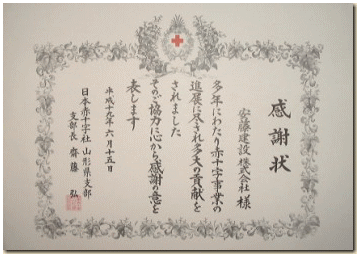 感謝状
安藤建設株式会社 様
多年にわたり赤十字事業の
進展に尽され多大の貢献を
されました
そのご協力に心から感謝の意を
表します
平成十九年六月十五日
日本赤十字社 山形県支部
支部長 齋藤 弘